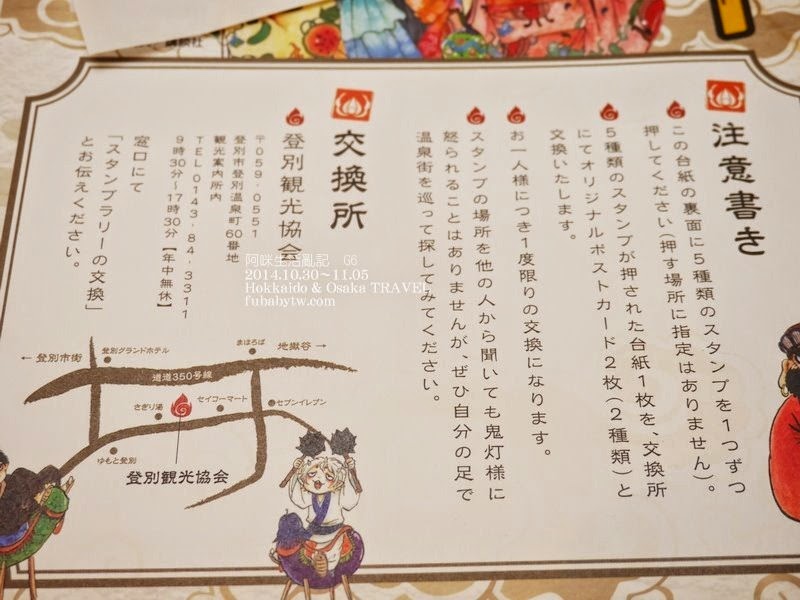 講談社
注意書き
この台紙の裏面に5種類のスタンプを1つずつ
押してください(押す場所に指定はありません)。
5種類のスタンプが押された台紙1枚を、交換所
にてオリジナルポストカード2枚(2種類)と
交換いたします。
お一人様につき1度限りの交換になります。
スタンプの場所を他の人から聞いても鬼灯様に
怒られることはありませんが、ぜひ自分の足で
温泉街を巡って探してみてください。
交換所
登別観光協会
〒059-0551
登別市登別温泉町60番地
観光案内所内
TEL0143-84-3311
9時30分~17時30分【年中無休】
窓口にて
「スタンプラリーの交換」
とお伝えください。
阿咪生活亂記 G6
2014.10.30~11.05
Hokkaido & Osaka TRAVEL
fubabytw.com
← 登別市街
登別グランドホテル
まほろば
地獄谷 →
道道350号線
さぎり湯
セイコーマート
セブンイレブン
ゆもと登別
登別観光協会